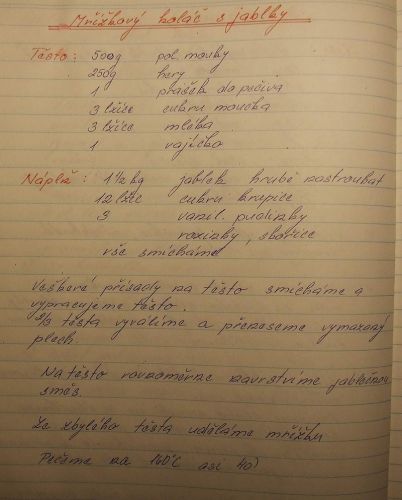 Mřížkový koláč s jablky
Těsto: 500g pol. mouky
250g hery
1 prášek do pečiva
3 lžíce cukru moučka
3 lžíce mléka
1 vajíčko
Náplň: 1 1/2 kg jablek hrubě nastrouhat
12 lžic cukru krupice
3 vanil. pudinky
rozinky, skořice
vše smícháme
Veškeré přísady na těsto smícháme a
vypracujeme těsto.
2/3 těsta vyválíme a přeneseme vymazaný
plech.
Na těsto rovnoměrně navrstvíme jablečnou
směs.
Ze zbylého těsta uděláme mřížku
Pečeme na 160°C asi 40'